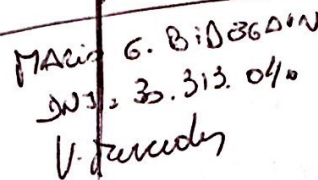 MARIO G. BiDEGAIN
DNI: 30.313.040
V. Mercedes